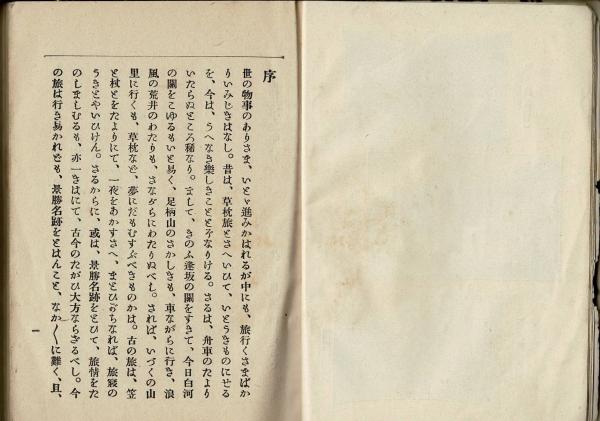 序
世の物事のありさま、いとゞ進みかはれるが中にも、旅行くさまばか
りいみじきはなし。昔は、草枕旅とさへいひて、いとうきものにせる
を、今は、うへなき樂しきことゝぞなりける。さるは、舟車のたより
いたらぬところ稀なり。まして、きのふ逢坂の關をすぎて、今日白河
の關をこゆるもいと易く、足柄山のさかしきも、車ながらに行き、浪
風の荒井のわたりも、さながらにわたりぬべし。されば、いづくの山
里に行くも、草枕など、夢にだもむすぶべきものかは。古の旅は、笠
と杖とをたよりにて、一夜をあかすさへ、まとひがちなれば、旅寢の
うきとやいひけん。さるからに、或は、景勝名跡をとひて、旅情をた
のしましむるも、亦一きはにて、古今のたがひ大方ならざるべし。今
の旅は行き易かれども、景勝名跡をとはんこと、なか〱に難く、且、
一